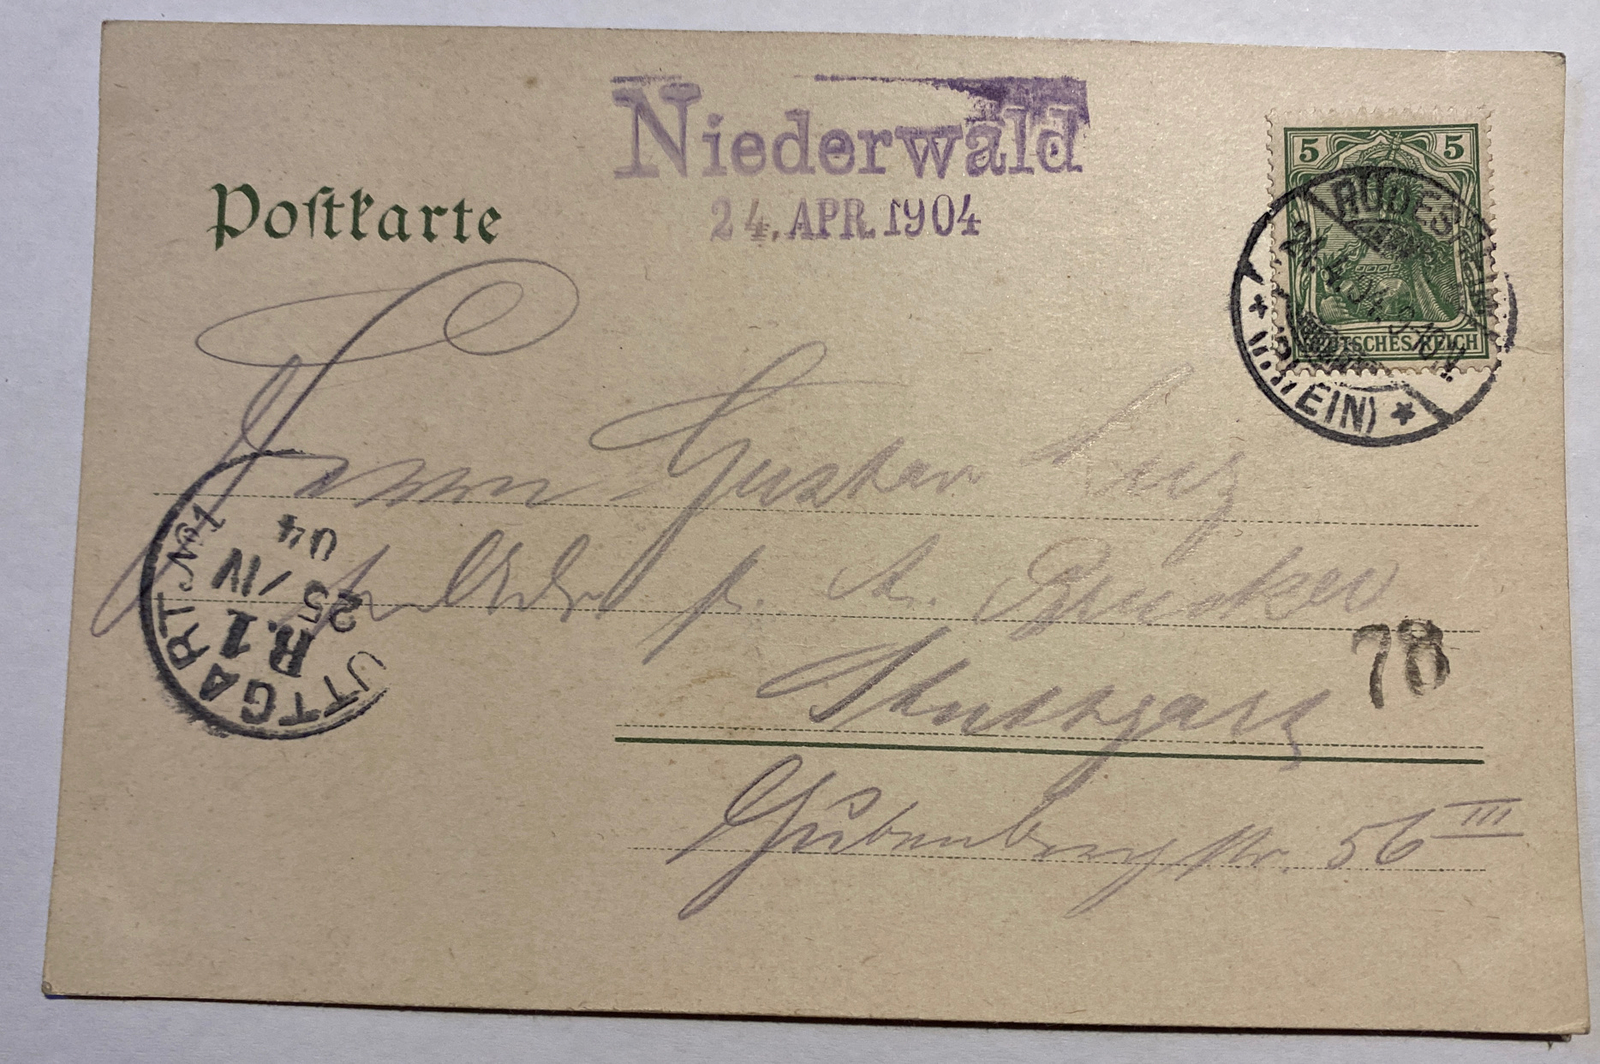 Niederwald
24. APR. 1904
Postkarte
5 5
DEUTSCHES REICH
RÜDESHEIM
24.4.04. 9-10 V.
(RHEIN)
Herrn Gustav
p. A. Brücker
Stuttgart
Gutenbergstr. 56 III
STUTTGART No 1
R.1
25/IV
04
78